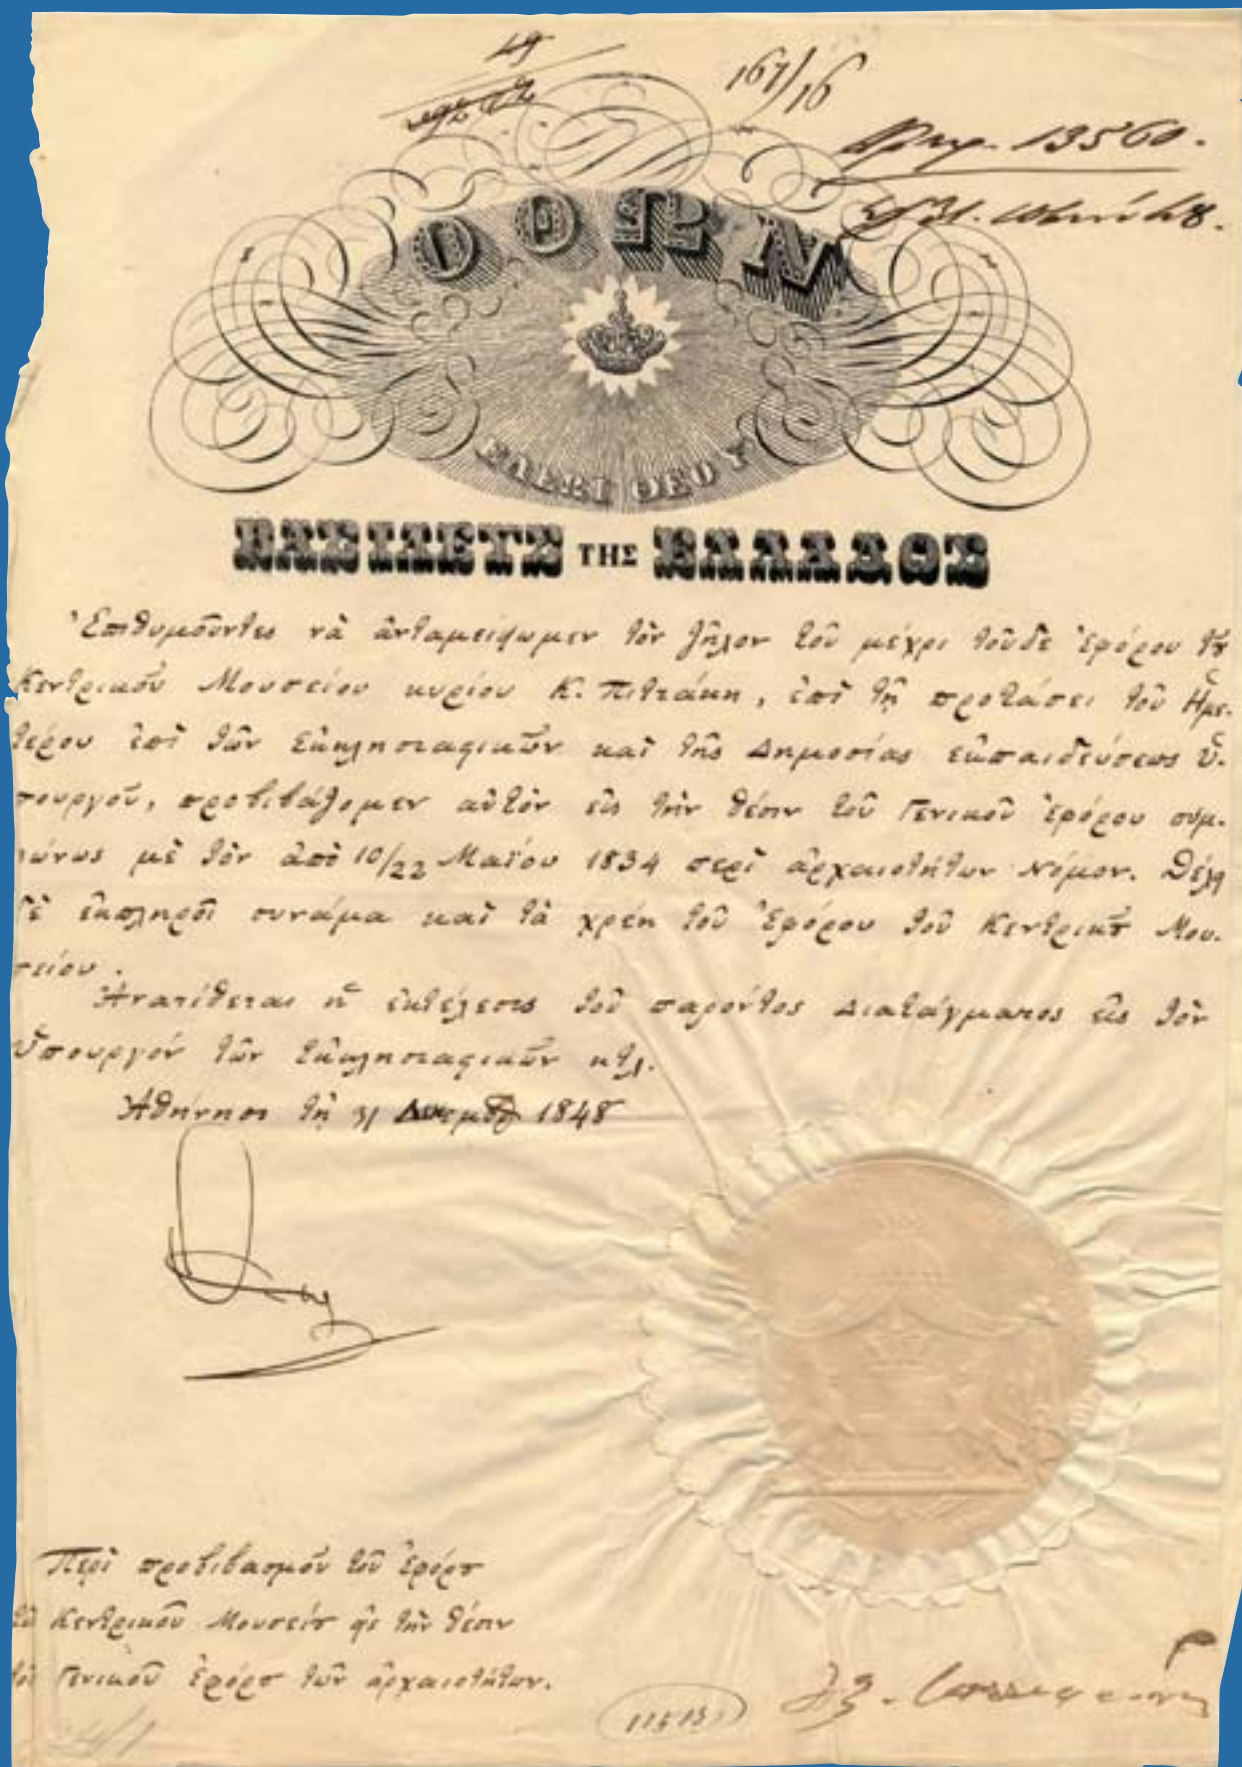 49
167/16
Πρωτ. 13560.
ΟΘΩΝ
ΕΛΕΩι ΘΕΟΥ
ΒΑΣΙΛΕΥΣ ΤΗΣ ΕΛΛΑΔΟΣ
Ἐπιθυμοῦντες νὰ ἀνταμείψωμεν τὸν ζῆλον τοῦ μέχρι τοῦδε Ἐφόρου τοῦ
Κεντρικοῦ Μουσείου κυρίου Κ. Πιττάκη, ἐπὶ τῇ προτάσει τοῦ Ἡμε-
τέρου ἐπὶ τῶν Ἐκκλησιαστικῶν καὶ τῆς Δημοσίας ἐκπαιδεύσεως Ὑ-
πουργοῦ, προβιβάζομεν αὐτὸν εἰς τὴν θέσιν τοῦ Γενικοῦ Ἐφόρου συμ-
φώνως μὲ τὸν ἀπὸ 10/22 Μαΐου 1834 περὶ ἀρχαιοτήτων Νόμον. Θέλει
δὲ ἐκπληροῖ συνάμα καὶ τὰ χρέη τοῦ Ἐφόρου τοῦ Κεντρικοῦ Μου-
σείου.
Ἀνατίθεται ἡ ἐκτέλεσις τοῦ παρόντος Διατάγματος εἰς τὸν
Ὑπουργὸν τῶν Ἐκκλησιαστικῶν κτλ.
Ἀθήνησι τῇ 31 Δεκεμβρ 1848
Περὶ προβιβασμοῦ τοῦ Ἐφόρου
τοῦ Κεντρικοῦ Μουσείου εἰς τὴν θέσιν
τοῦ Γενικοῦ Ἐφόρου τῶν ἀρχαιοτήτων.